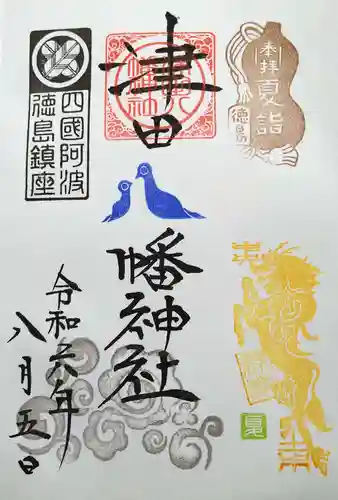 奉拝
夏詣
徳島
津田
八幡神社
四國阿波
徳島鎮座
令和六年
八月五日
夏